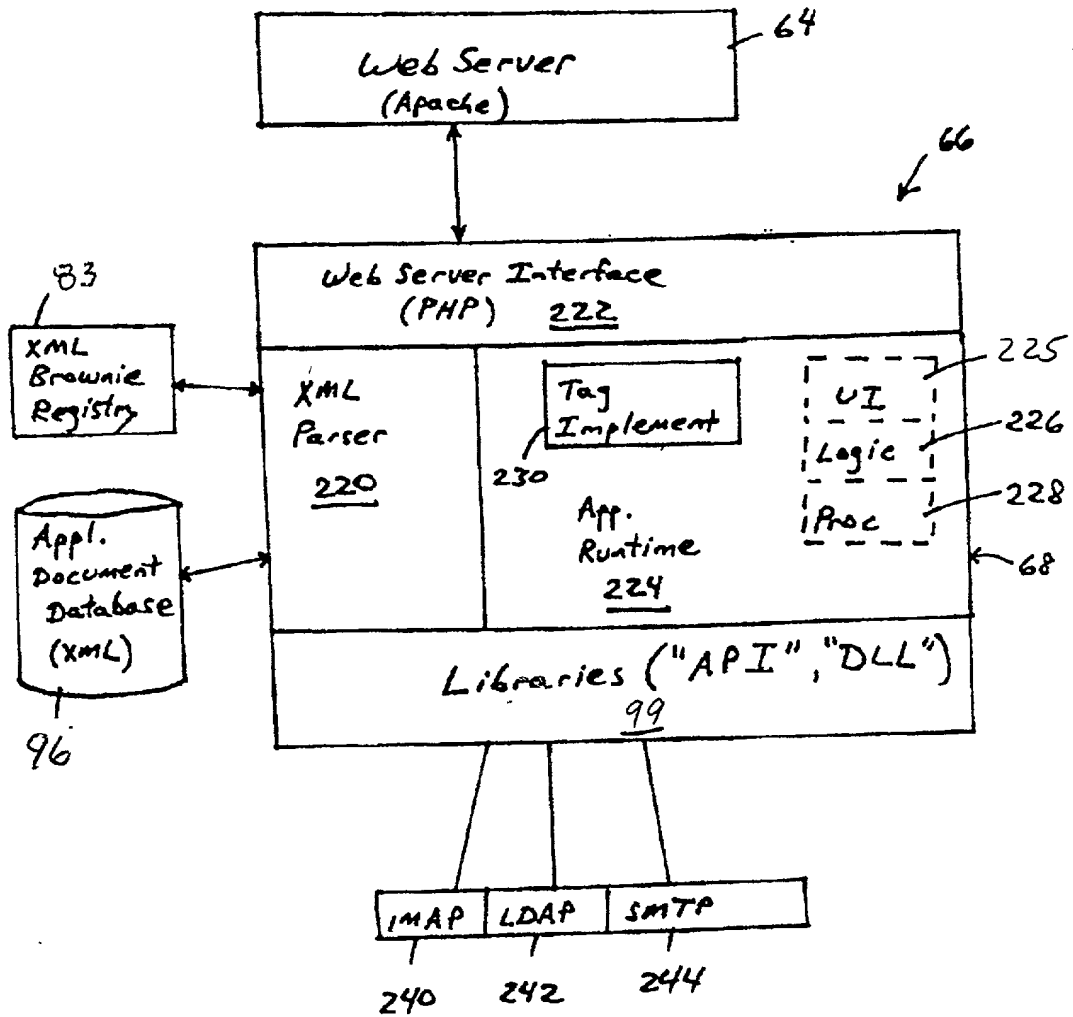 64
Web Server
(Apache)
66
Web Server Interface
(PHP) 222
83
XML
Brownie
Registry
XML
Parser
220
Tag
Implement
230
App.
Runtime
224
UI
225
Logic
226
Proc
228
68
Appl.
Document
Database
(XML)
96
Libraries ("API","DLL")
99
IMAP LDAP SMTP
240 242 244